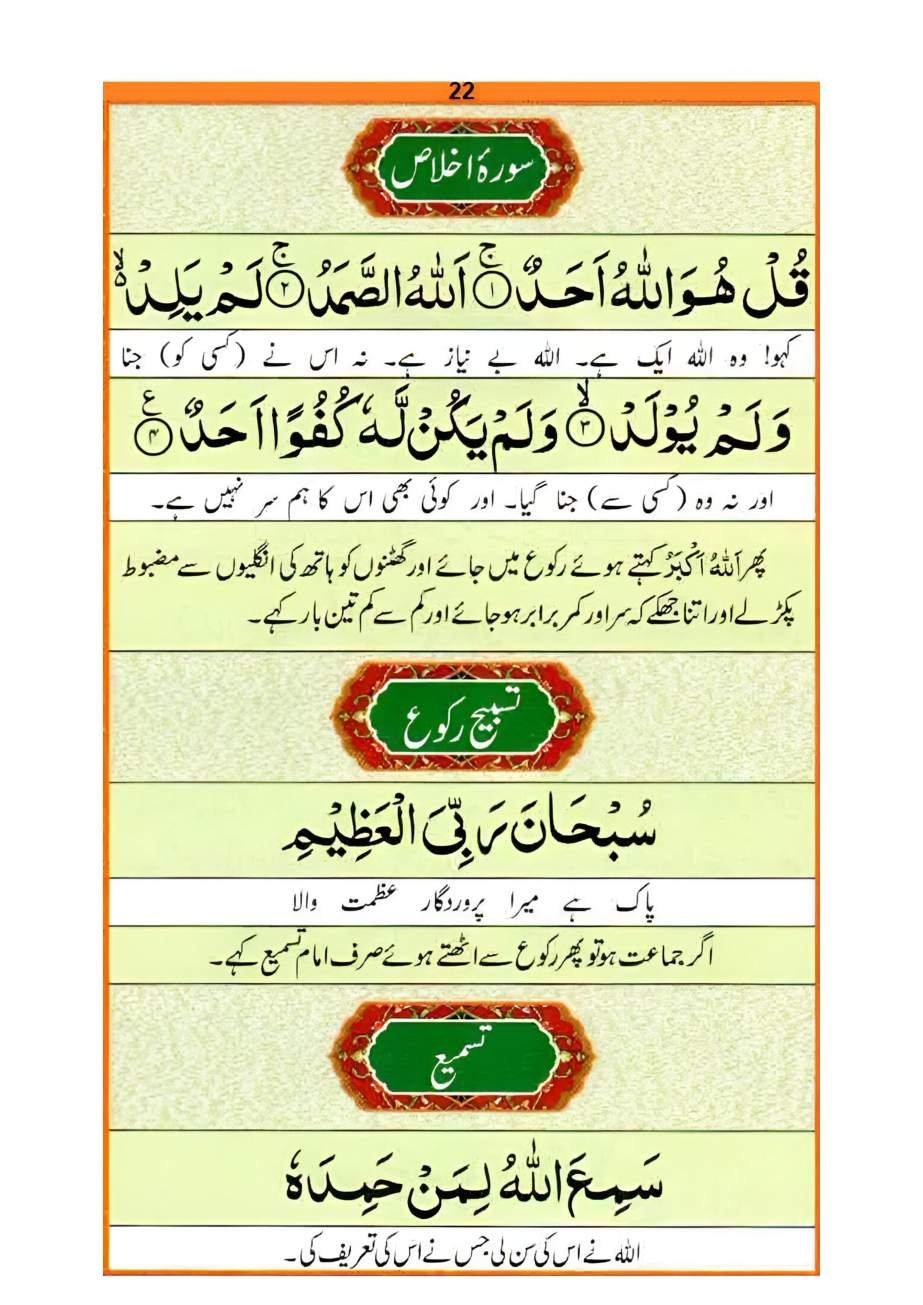 22
سورۂ اخلاص
قُلْ هُوَ اللّٰهُ اَحَدٌ ۚ﴿۱﴾ اَللّٰهُ الصَّمَدُ ۚ﴿۲﴾ لَمْ يَلِدْ ۙ۬
کہو! وہ اللہ ایک ہے۔ اللہ بے نیاز ہے۔ نہ اس نے (کسی کو) جنا
وَلَمْ يُوْلَدْ ۙ﴿۳﴾ وَلَمْ يَكُنْ لَّهٗ كُفُوًا اَحَدٌ ﴿۴﴾ ع
اور نہ وہ (کسی سے) جنا گیا۔ اور کوئی بھی اس کا ہم سر نہیں ہے۔
پھر اَللّٰهُ اَكْبَرُ کہتے ہوئے رکوع میں جائے اور گھٹنوں کو ہاتھ کی انگلیوں سے مضبوط
پکڑ لے اور اتنا جھکے کہ سر اور کمر برابر ہو جائے اور کم سے کم تین بار کہے۔
تسبیح رکوع
سُبْحَانَ رَبِّيَ الْعَظِيْمِ
پاک ہے میرا پروردگار عظمت والا
اگر جماعت ہو تو پھر رکوع سے اٹھتے ہوئے صرف امام تسمیع کہے۔
تسمیع
سَمِعَ اللّٰهُ لِمَنْ حَمِدَهٗ
اللہ نے اس کی سن لی جس نے اس کی تعریف کی۔